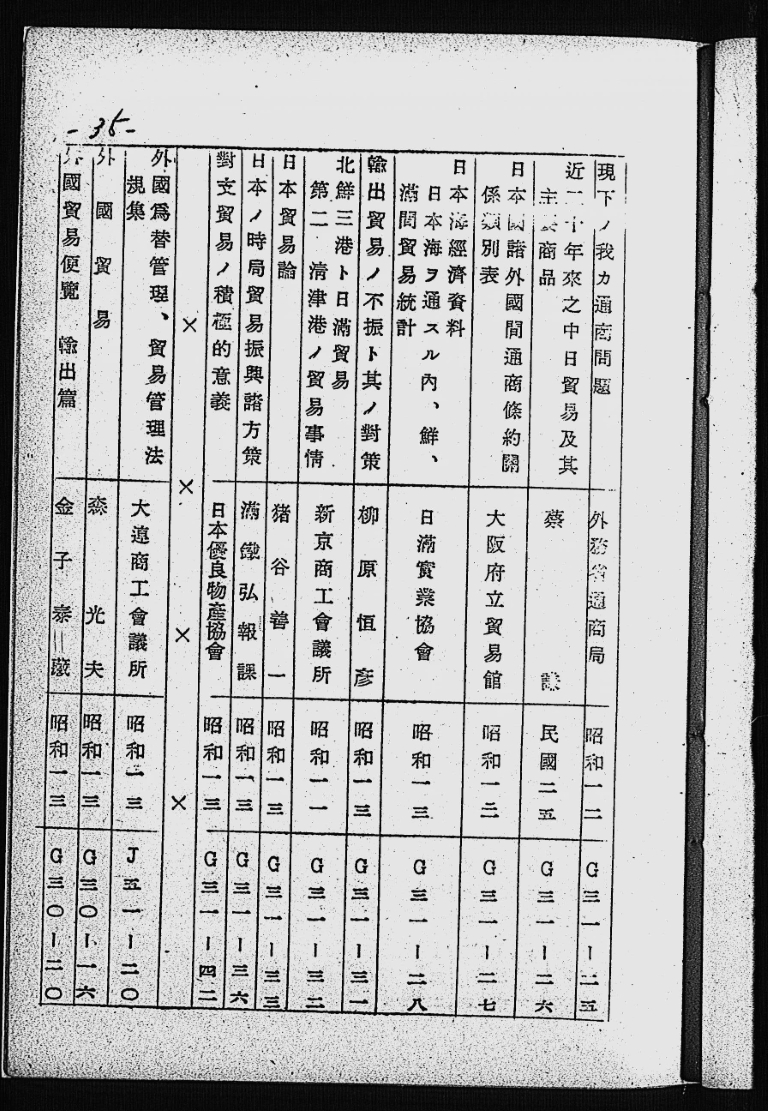 -35-
現下ノ我カ通商問題 外務省通商局 昭和一二 G三一ー二五
近二十年來之中日貿易及其
主要商品 蔡謙 民國二五 G三一ー二六
日本國諸外國間通商條約關
係類別表 大阪府立貿易館 昭和一三 G三一ー二七
日本海經濟資料
日本海ヲ通スル內、鮮、
滿間貿易統計 日滿實業協會 昭和一三 G三一ー二八
輸出貿易ノ不振ト其ノ對策 柳原恒彥 昭和一三 G三一ー三一
北鮮三港ト日滿貿易
第二 淸津港ノ貿易事情 新京商工會議所 昭和一一 G三一ー三二
日本貿易論 猪谷善一 昭和一三 G三一ー三三
日本ノ時局貿易振興諸方策 滿鐵弘報課 昭和一三 G三一ー三六
對支貿易ノ積極的意義 日本優良物產協會 昭和一三 G三一ー四二
× × × ×
外國爲替管理、貿易管理法
規集 大連商工會議所 昭和一三 J五一ー二〇
外國貿易 森光夫 昭和一三 G三〇ー一六
外國貿易便覽 輸出篇 金子泰藏 昭和一三 G三〇ー二〇